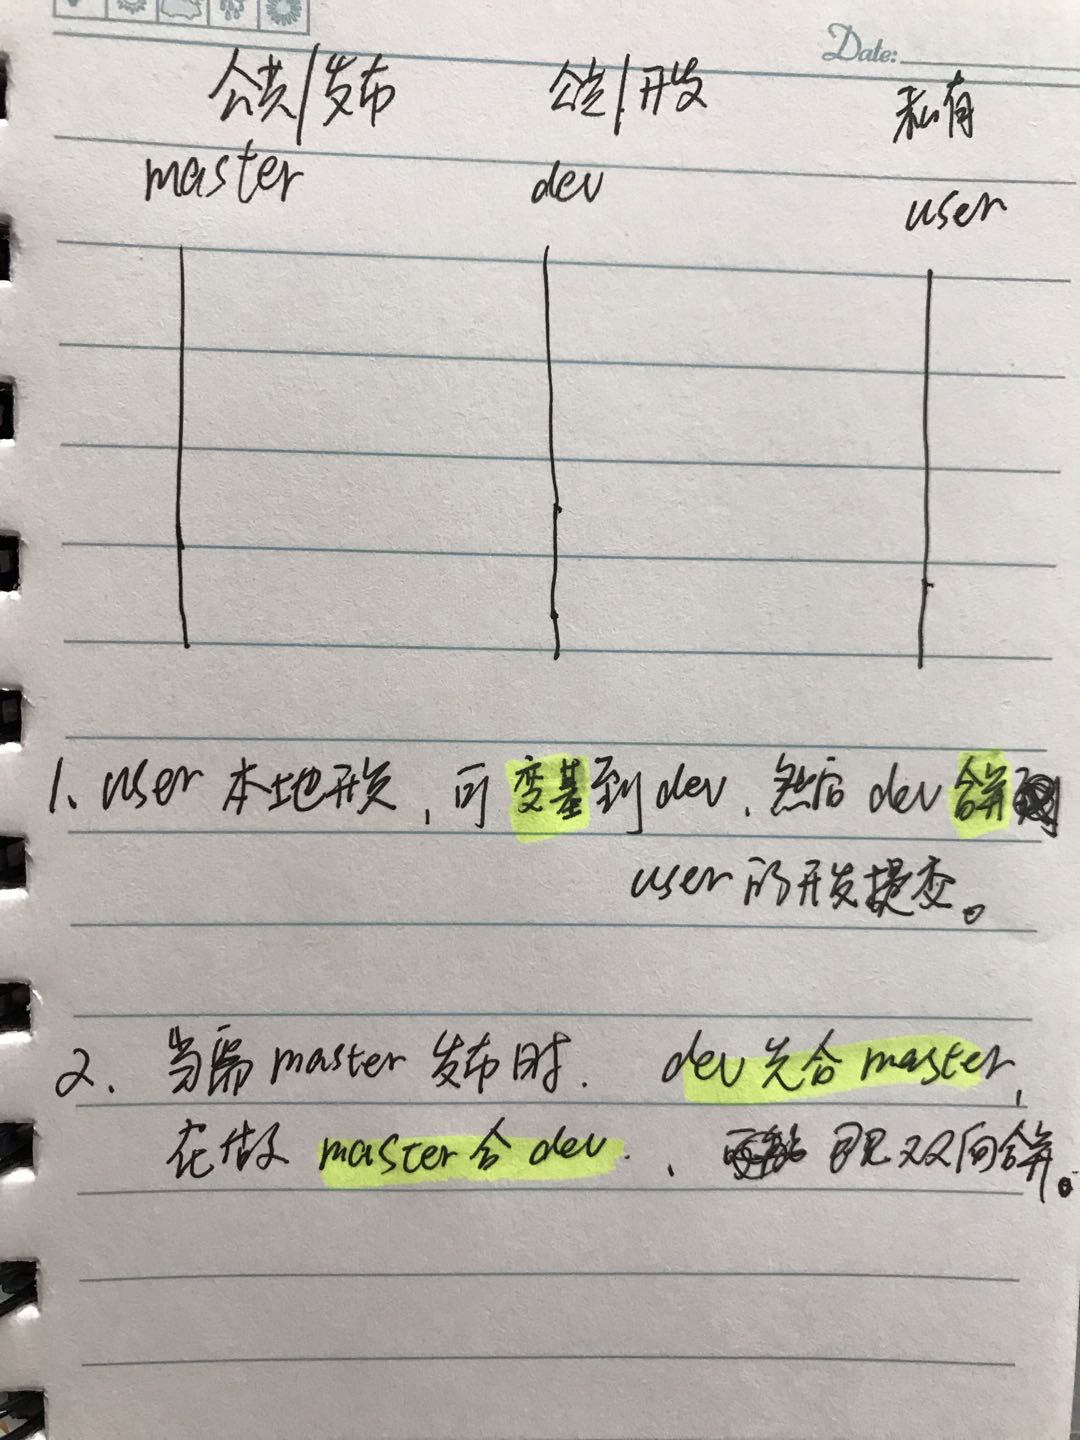 Date:
公共/发布 公共/开发 私有
master dev user
1、user 本地开发，可变基到dev，然后 dev 合并
user的开发提交。
2、当需 master 发布时. dev 先合 master,
在做 master 合 dev. 、 即双向合并。